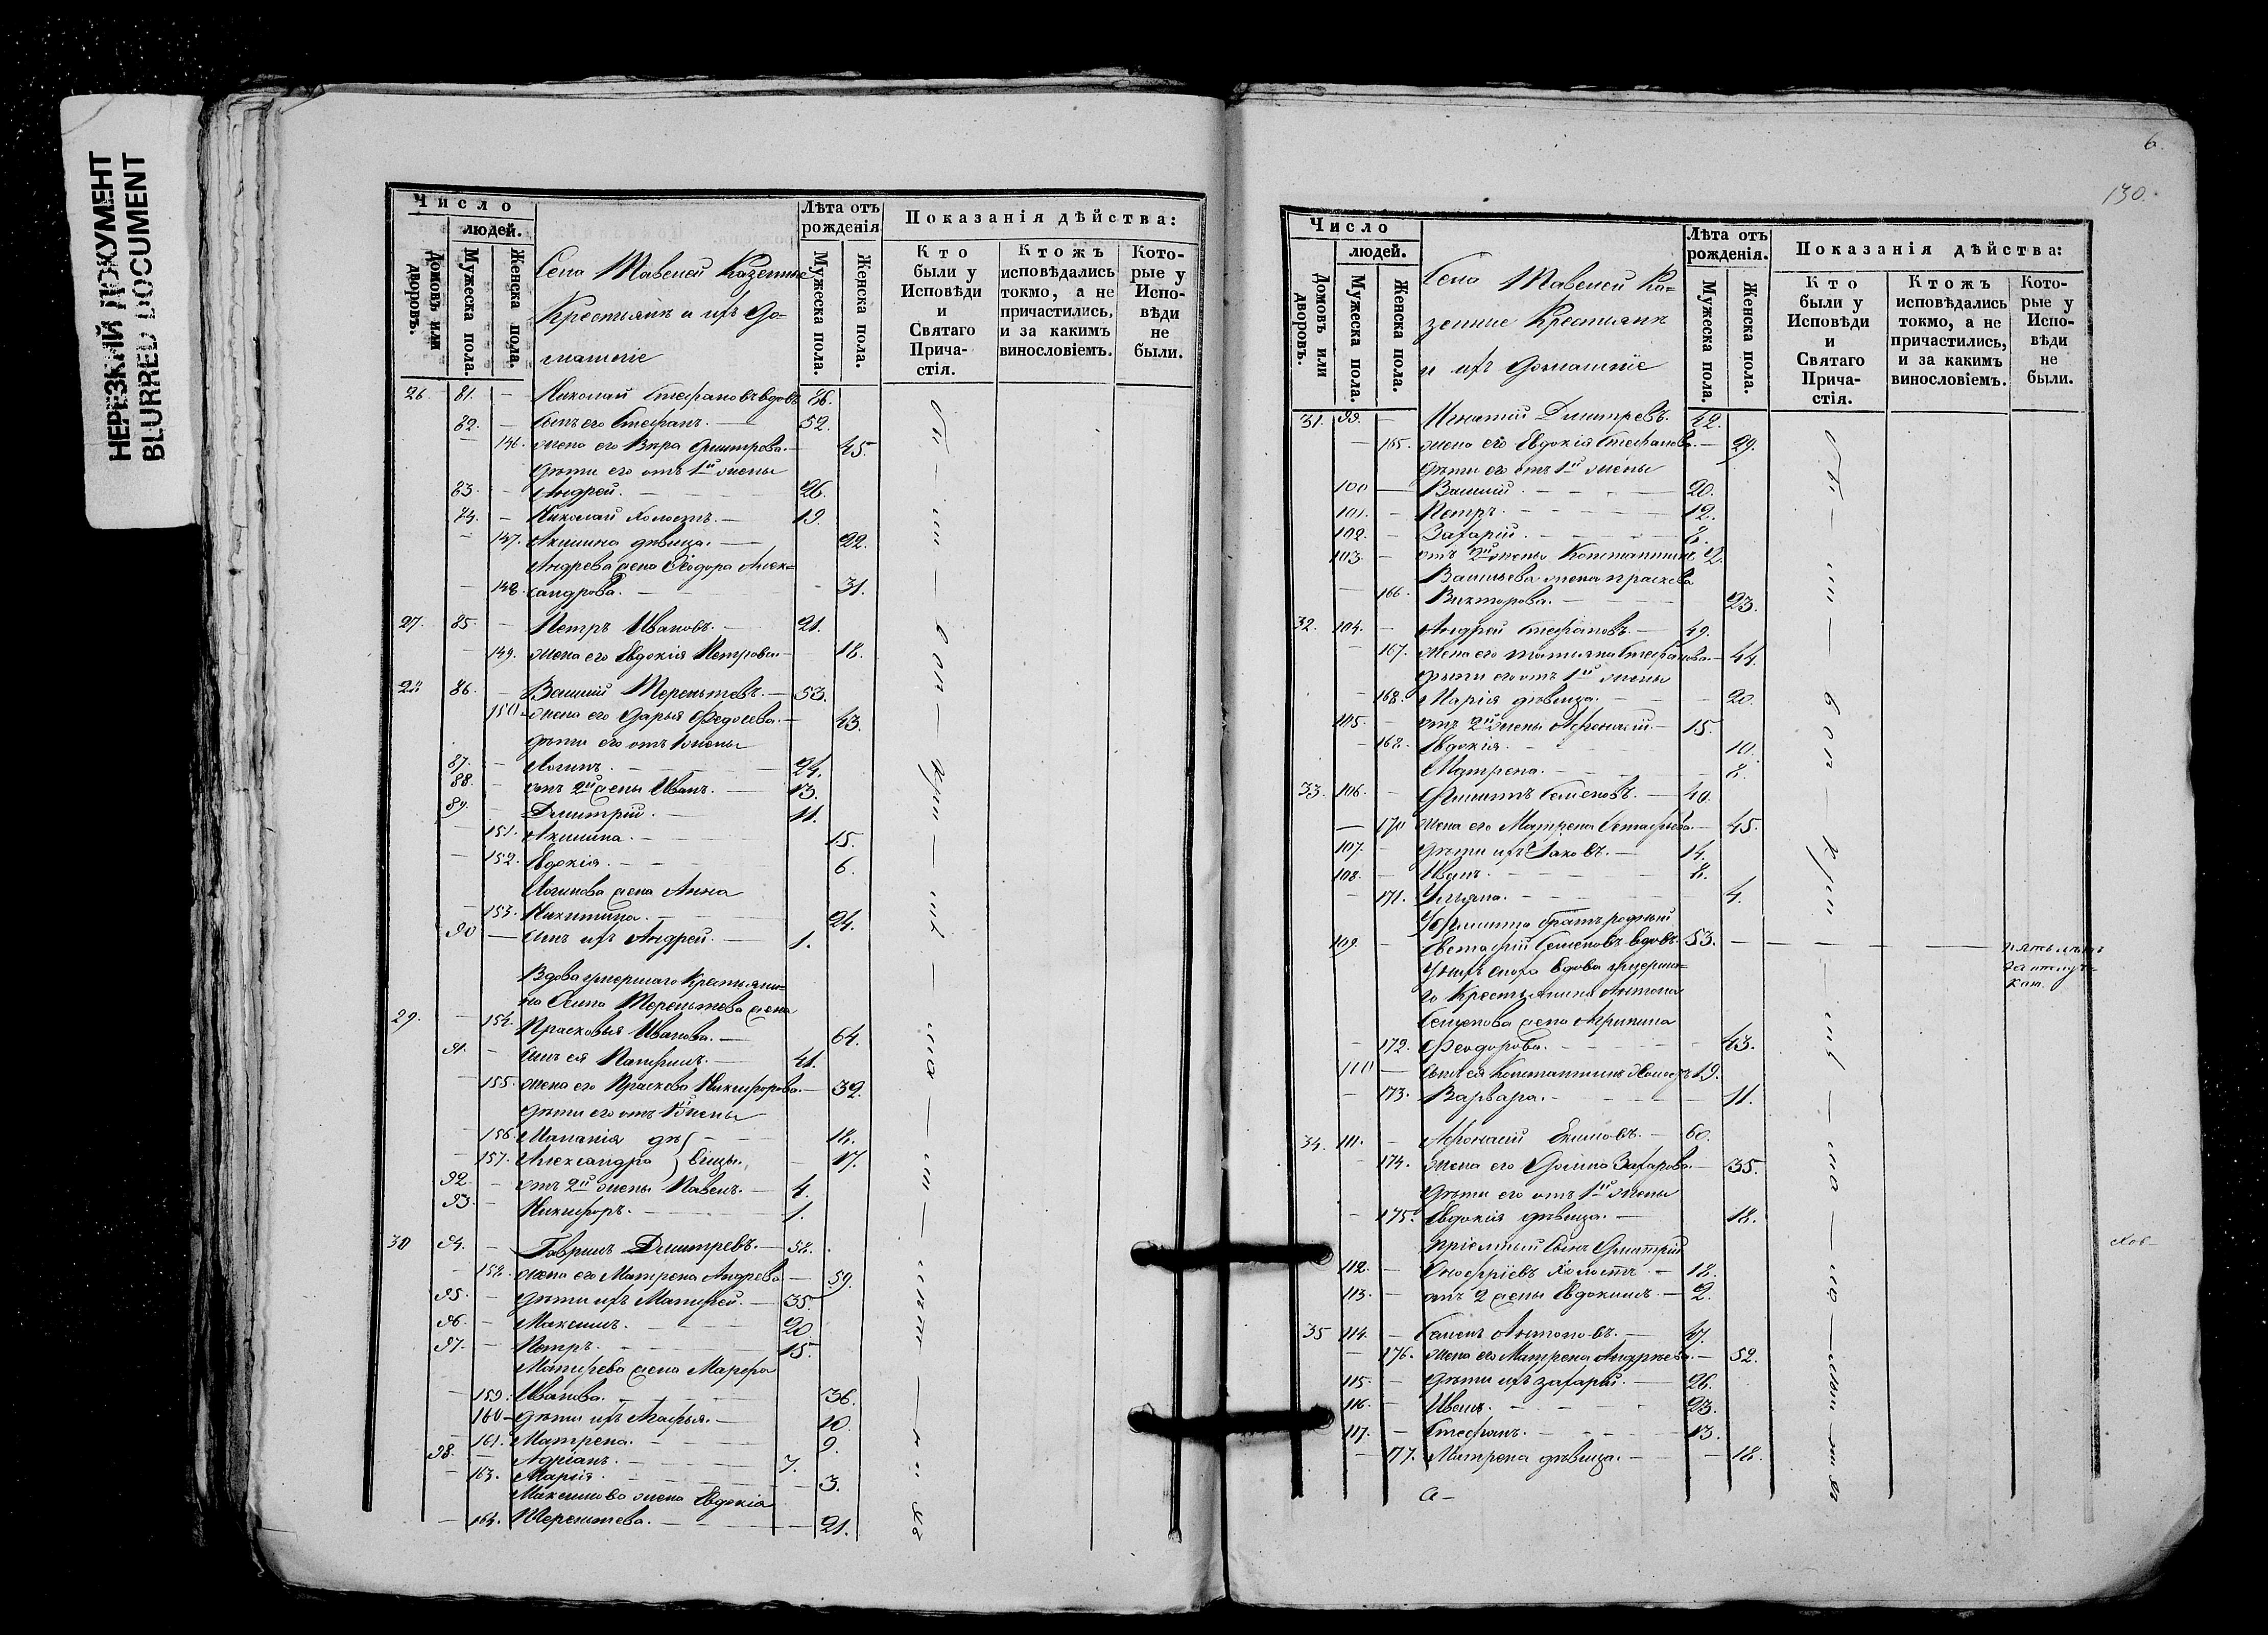 НЕРЕЗКИЙ ДОКУМЕНТ
BLURRED DOCUMENT
Число
людей.
Домовъ или дворовъ.
Мужеска пола.
Женска пола.
Села Тавелей Казенные
Крестьянъ и ихъ до-
машніе
Лѣта отъ рожденія
Мужеска пола.
Женска пола.
Показанія дѣйства:
Кто были у Исповѣди и Святаго Прича-стія.
Ктожъ исповѣдались токмо, а не причастились, и за какимъ винословіемъ.
Кото-рые у Испо-вѣди не были.
26. 81. — Николай Стефановъ вдовъ 86.
82. — Сынъ его Стефанъ. — 52.
— 146. Жена его Вѣра Дмитрева. — 45.
дѣти его отъ 1й жены
83. — Андрей. — 26.
84. — Николай холостъ. — 19.
— 147. Акилина дѣвица. — 22.
Андрева жена Ѳеодора Алек-
— 148. сандрова. — 31.
27. 85. — Петръ Ивановъ. — 21.
— 149. Жена его Евдокія Петрова. — 18.
28 86. — Василій Терентьевъ. — 53.
150 — Жена его Дарья Федосева. — 43.
дѣти его отъ 1 жены
87. — Логинъ. — 24.
88. — отъ 2й жены Иванъ. — 13.
89. — Димитрій. — 11.
— 151. Акилина. — 15.
— 152. Евдокія. — 6.
Логинова жена Анна
— 153. Никитина. — 24.
90 — Сынъ ихъ Андрей. — 1.
Вдова умершаго Крестьяни-
на Осипа Терентьева жена
29. — 154. Прасковья Иванова. — 64.
91. — Сынъ ея Памфилъ. — 41.
— 155. Жена его Праскева Никифорова. — 32.
дѣти его отъ 1й жены
— 156. Маланія дѣ — 18.
— 157. Александра вицы. — 17.
92. — отъ 2й жены Павелъ. — 4.
93. — Никифоръ. — 1.
30 94. — Гаврилъ Димитревъ. — 58.
— 158. Жена его Матрена Андрева — 59.
95. — дѣти ихъ Матфей. — 35.
96. — Максимъ. — 20.
97. — Петръ. — 15.
Матфева жена Марфа
— 159. Иванова. — 36.
160 — дѣти ихъ Агафья. — 10.
— 161. Матрена. — 9.
98. — Адріанъ. — 7.
— 163. Марія. — 3.
Максимова жена Евдокія
— 164. Терентьева. — 21.
6.
130.
Число
людей.
Домовъ или дворовъ.
Мужеска пола.
Женска пола.
Села Тавелей Ка-
зенные Крестьянъ
и ихъ домашніе
Лѣта отъ рожденія.
Мужеска пола.
Женска пола.
Показанія дѣйства:
Кто были у Исповѣди и Святаго Прича-стія.
Ктожъ исповѣдались токмо, а не причастились, и за какимъ винословіемъ.
Кото-рые у Испо-вѣди не были.
31. 99. — Игнатій Димитревъ. 42.
— 165. Жена его Евдокія Стефанова. — 29.
дѣти его отъ 1й жены
100 — Василій. — 20.
101. — Петръ. — 12.
102. — Захарій. — 8.
103. — отъ 2й жены Константинъ 2.
Васильева жена Праскева
— 166. Викторова. — 23.
32. 104. — Андрей Стефановъ. — 49.
— 167. Жена его Татьяна Стефанова. — 44.
дѣти его отъ 1й жены
— 168. Марія дѣвица. — 20.
105. — отъ 2й жены Афанасій. — 15.
— 168. Евдокія. — 10.
Матрена. — 8.
33. 106. — Филиппъ Семеновъ. — 49.
— 170 Жена его Матрена Евстафьева. — 45.
107. — дѣти ихъ Іаковъ. — 14.
108. — Иванъ. — 8.
— 171. Ульяна. — 4.
У Филиппа братъ родный
109. — Евстафій Семеновъ вдовъ. 53. —
У нихъ сноха вдова умерша-
го Крестьянина Антона
Семенова жена Агрипина
— 172. Феодорова. — 43.
110 — Сынъ ея Константинъ холостъ 19.
— 173. Варвара. — 11.
34. 111. — Афонасій Екимовъ. — 60.
— 174. Жена его Домна Захарова. — 35.
дѣти его отъ 1й жены
— 175. Евдокія дѣвица. — 18.
Пріемный сынъ Дмитрій
112. — Онофріевъ холостъ. — 18.
113. — отъ 2 жены Евдокимъ. — 2.
35 114. — Семенъ Антоновъ. — 47.
— 176. Жена его Матрена Андреева. — 52.
115. — дѣти ихъ Захарій. — 26.
116. — Иванъ. — 23.
117. — Стефанъ. — 13.
— 177. Матрена дѣвица. — 18.